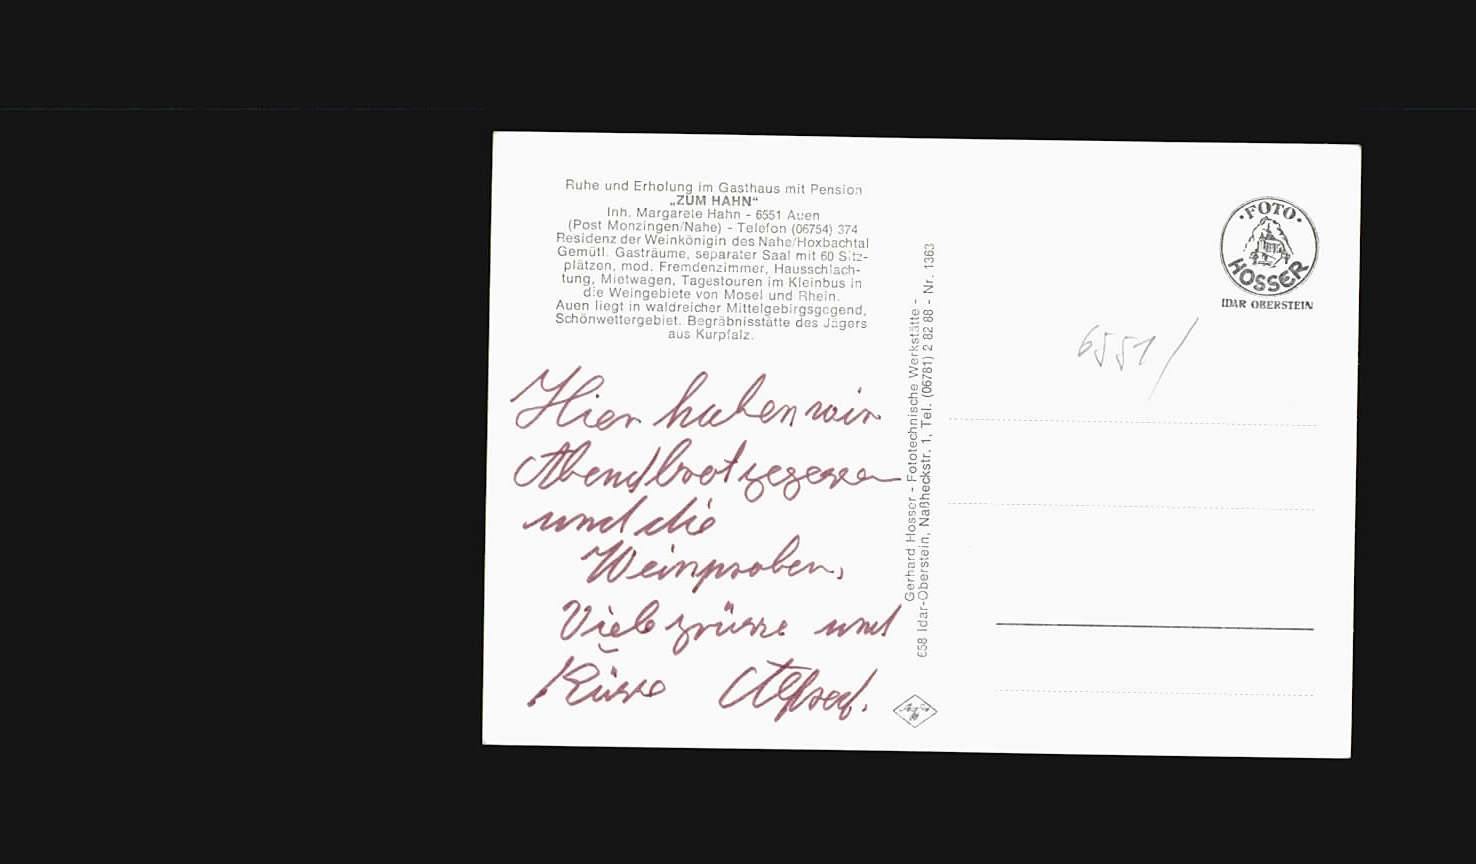 Ruhe und Erholung im Gasthaus mit Pension
„ZUM HAHN“
Inh. Margarete Hahn - 6551 Auen
(Post Monzingen/Nahe) - Telefon (06754) 374
Residenz der Weinkönigin des Nahe/Hoxbachtal
Gemütl. Gasträume, separater Saal mit 60 Sitz-
plätzen, mod. Fremdenzimmer, Hausschlach-
tung, Mietwagen, Tagestouren im Kleinbus in
die Weingebiete von Mosel und Rhein.
Auen liegt in waldreicher Mittelgebirgsgegend,
Schönwettergebiet. Begräbnisstätte des Jägers
aus Kurpfalz.
Hier haben wir
Abendbrot gegessen
und die
Weinproben,
Viele grüsse und
Küsse Alfred.
Gerhard Hosser - Fototechnische Werkstätte -
658 Idar-Oberstein, Naßheckstr. 1, Tel. (06781) 2 82 88 - Nr. 1363
·FOTO·
HOSSER
IDAR OBERSTEIN
6551/